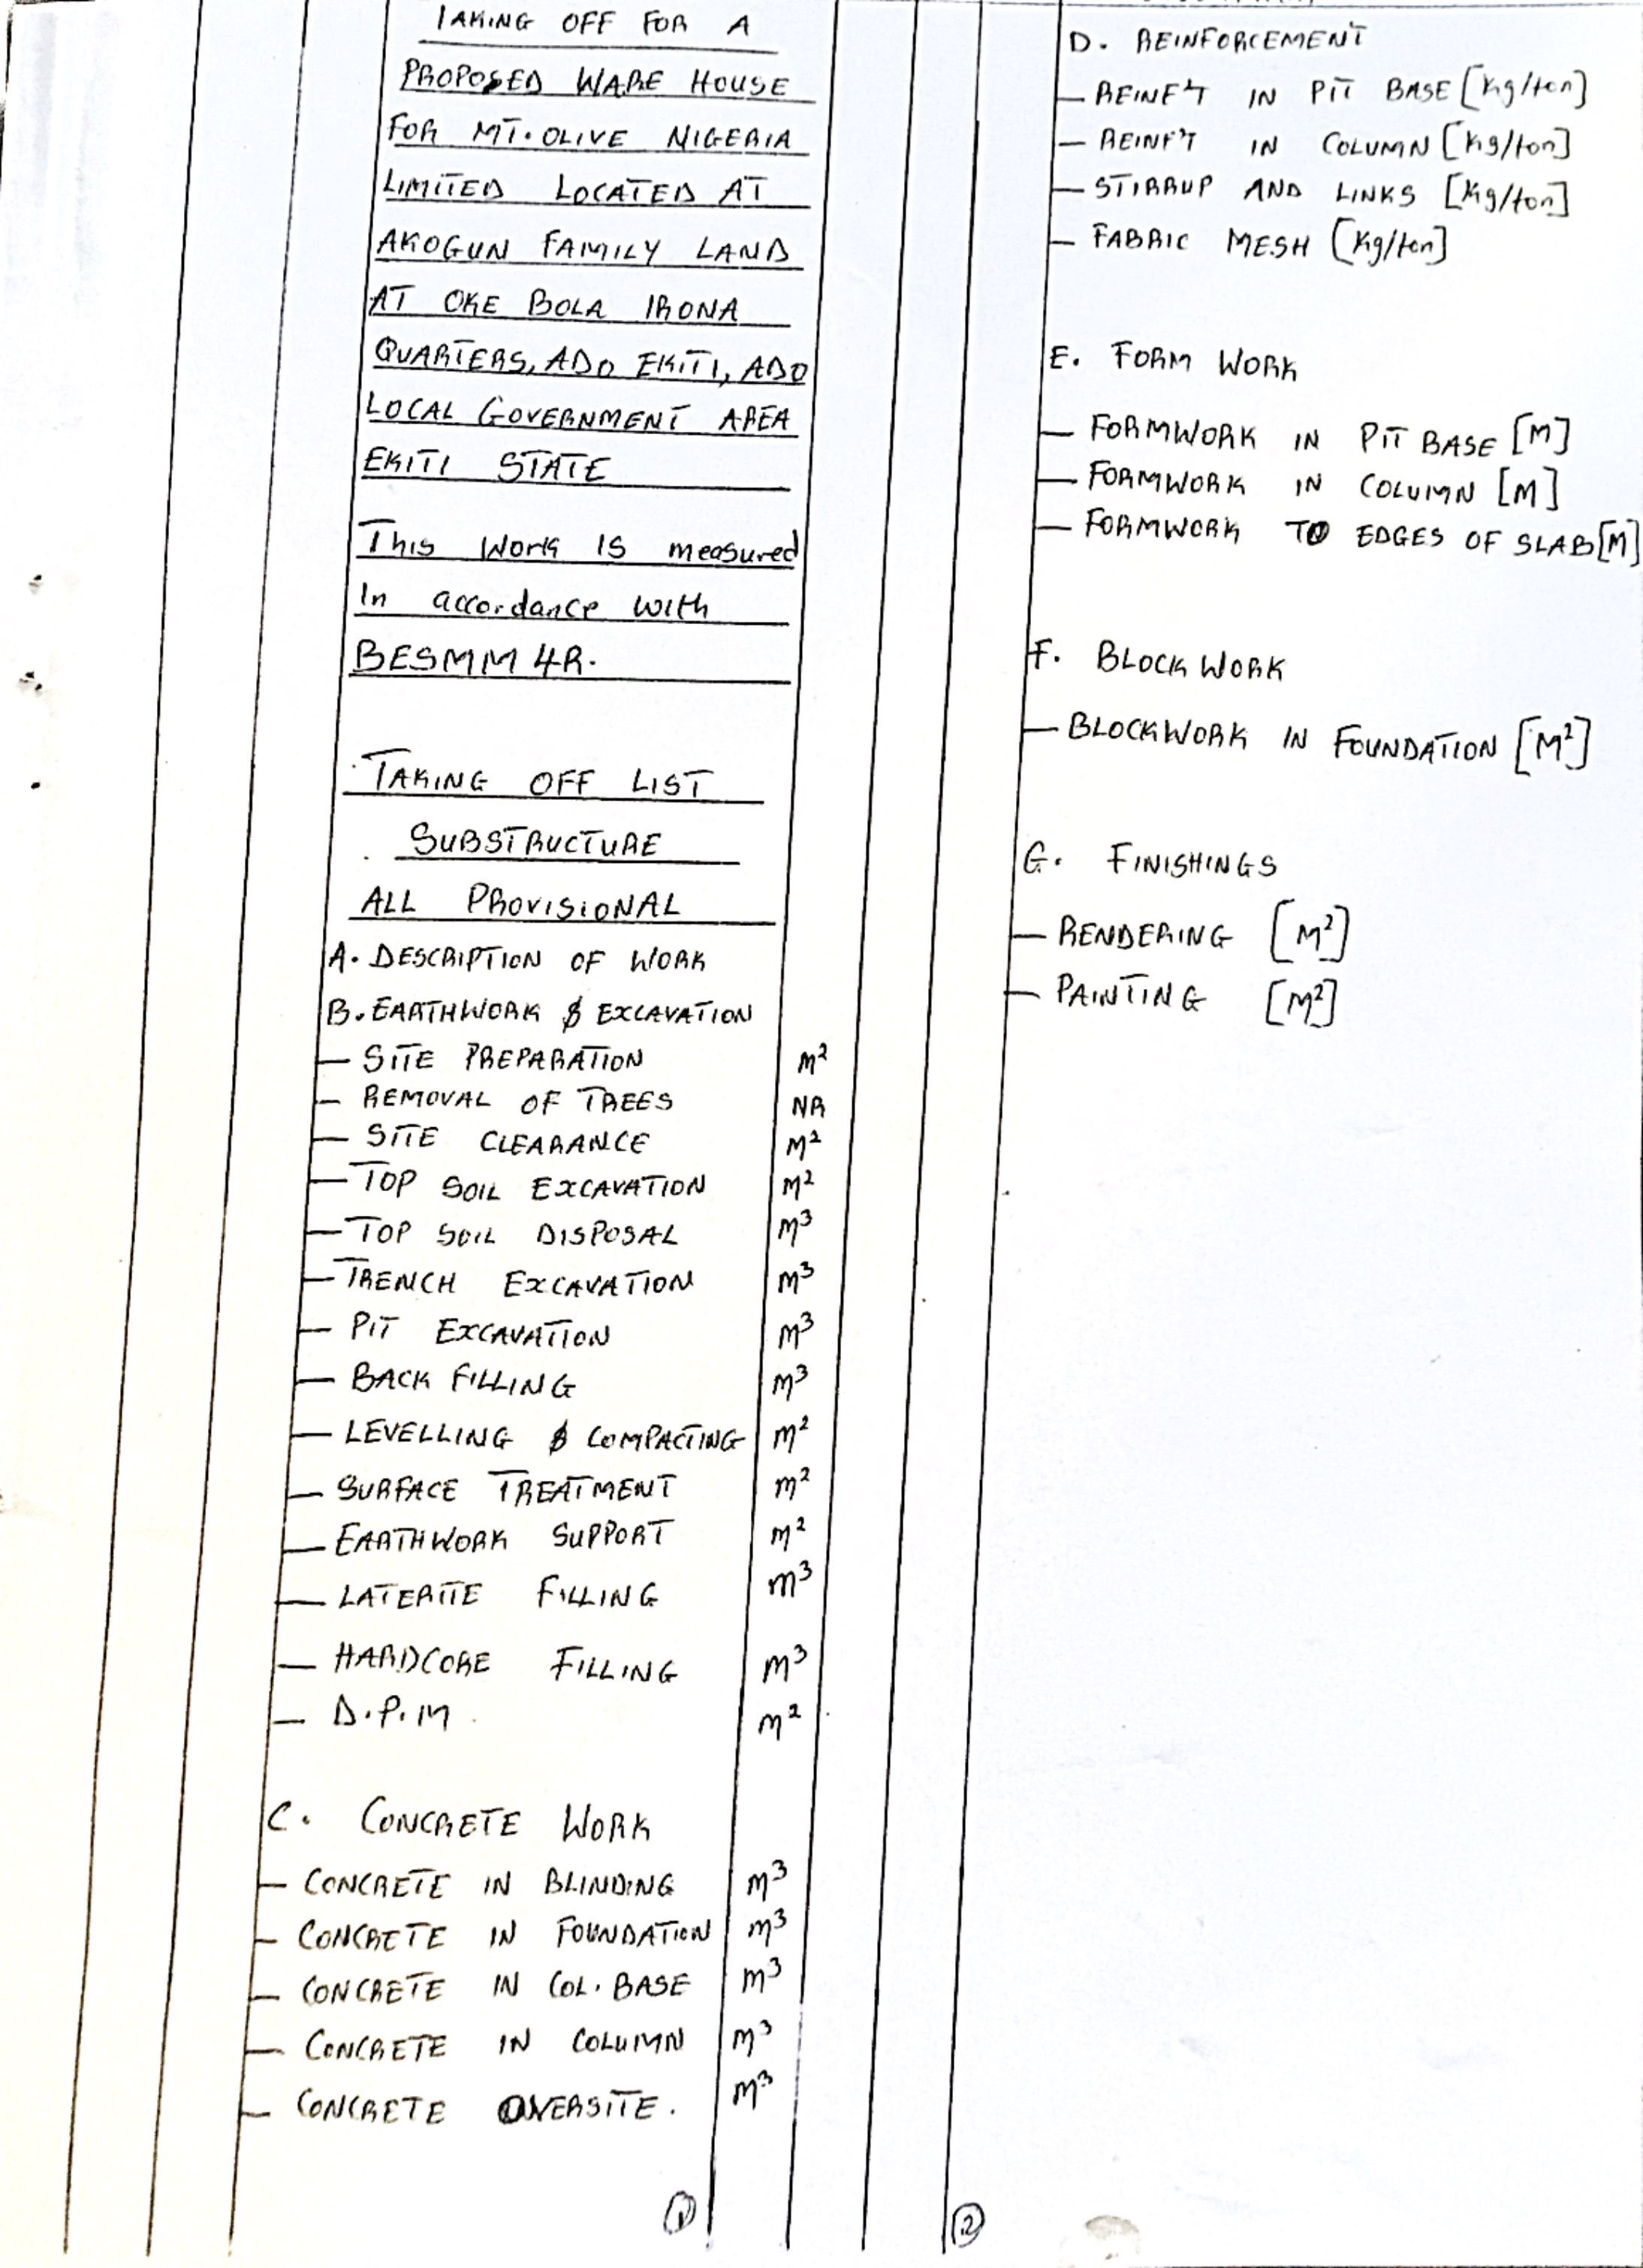 TAKING OFF FOR A
PROPOSED WARE HOUSE
FOR MT. OLIVE NIGERIA
LIMITED LOCATED AT
AKOGUN FAMILY LAND
AT OKE BOLA IRONA
QUARTERS, ADO EKITI, ADO
LOCAL GOVERNMENT AREA
EKITI STATE
This Work is measured
In accordance with
BESMM 4R.
TAKING OFF LIST
SUBSTRUCTURE
ALL PROVISIONAL
A. DESCRIPTION OF WORK
B. EARTHWORK & EXCAVATION
— SITE PREPARATION M²
— REMOVAL OF TREES NR
— SITE CLEARANCE M²
— TOP SOIL EXCAVATION M²
— TOP SOIL DISPOSAL M³
— TRENCH EXCAVATION M³
— PIT EXCAVATION M³
— BACK FILLING M³
— LEVELLING & COMPACTING M²
— SURFACE TREATMENT M²
— EARTHWORK SUPPORT M²
— LATERITE FILLING M³
— HARDCORE FILLING M³
— D.P.M. M²
C. CONCRETE WORK
— CONCRETE IN BLINDING M³
— CONCRETE IN FOUNDATION M³
— CONCRETE IN COL. BASE M³
— CONCRETE IN COLUMN M³
— CONCRETE OVERSITE. M³
1
D. REINFORCEMENT
— REINF'T IN PIT BASE [Kg/ton]
— REINF'T IN COLUMN [Kg/ton]
— STIRRUP AND LINKS [Kg/ton]
— FABRIC MESH [Kg/ton]
E. FORM WORK
— FORMWORK IN PIT BASE [M]
— FORMWORK IN COLUMN [M]
— FORMWORK TO EDGES OF SLAB [M]
F. BLOCK WORK
— BLOCKWORK IN FOUNDATION [M²]
G. FINISHINGS
— RENDERING [M²]
— PAINTING [M²]
2